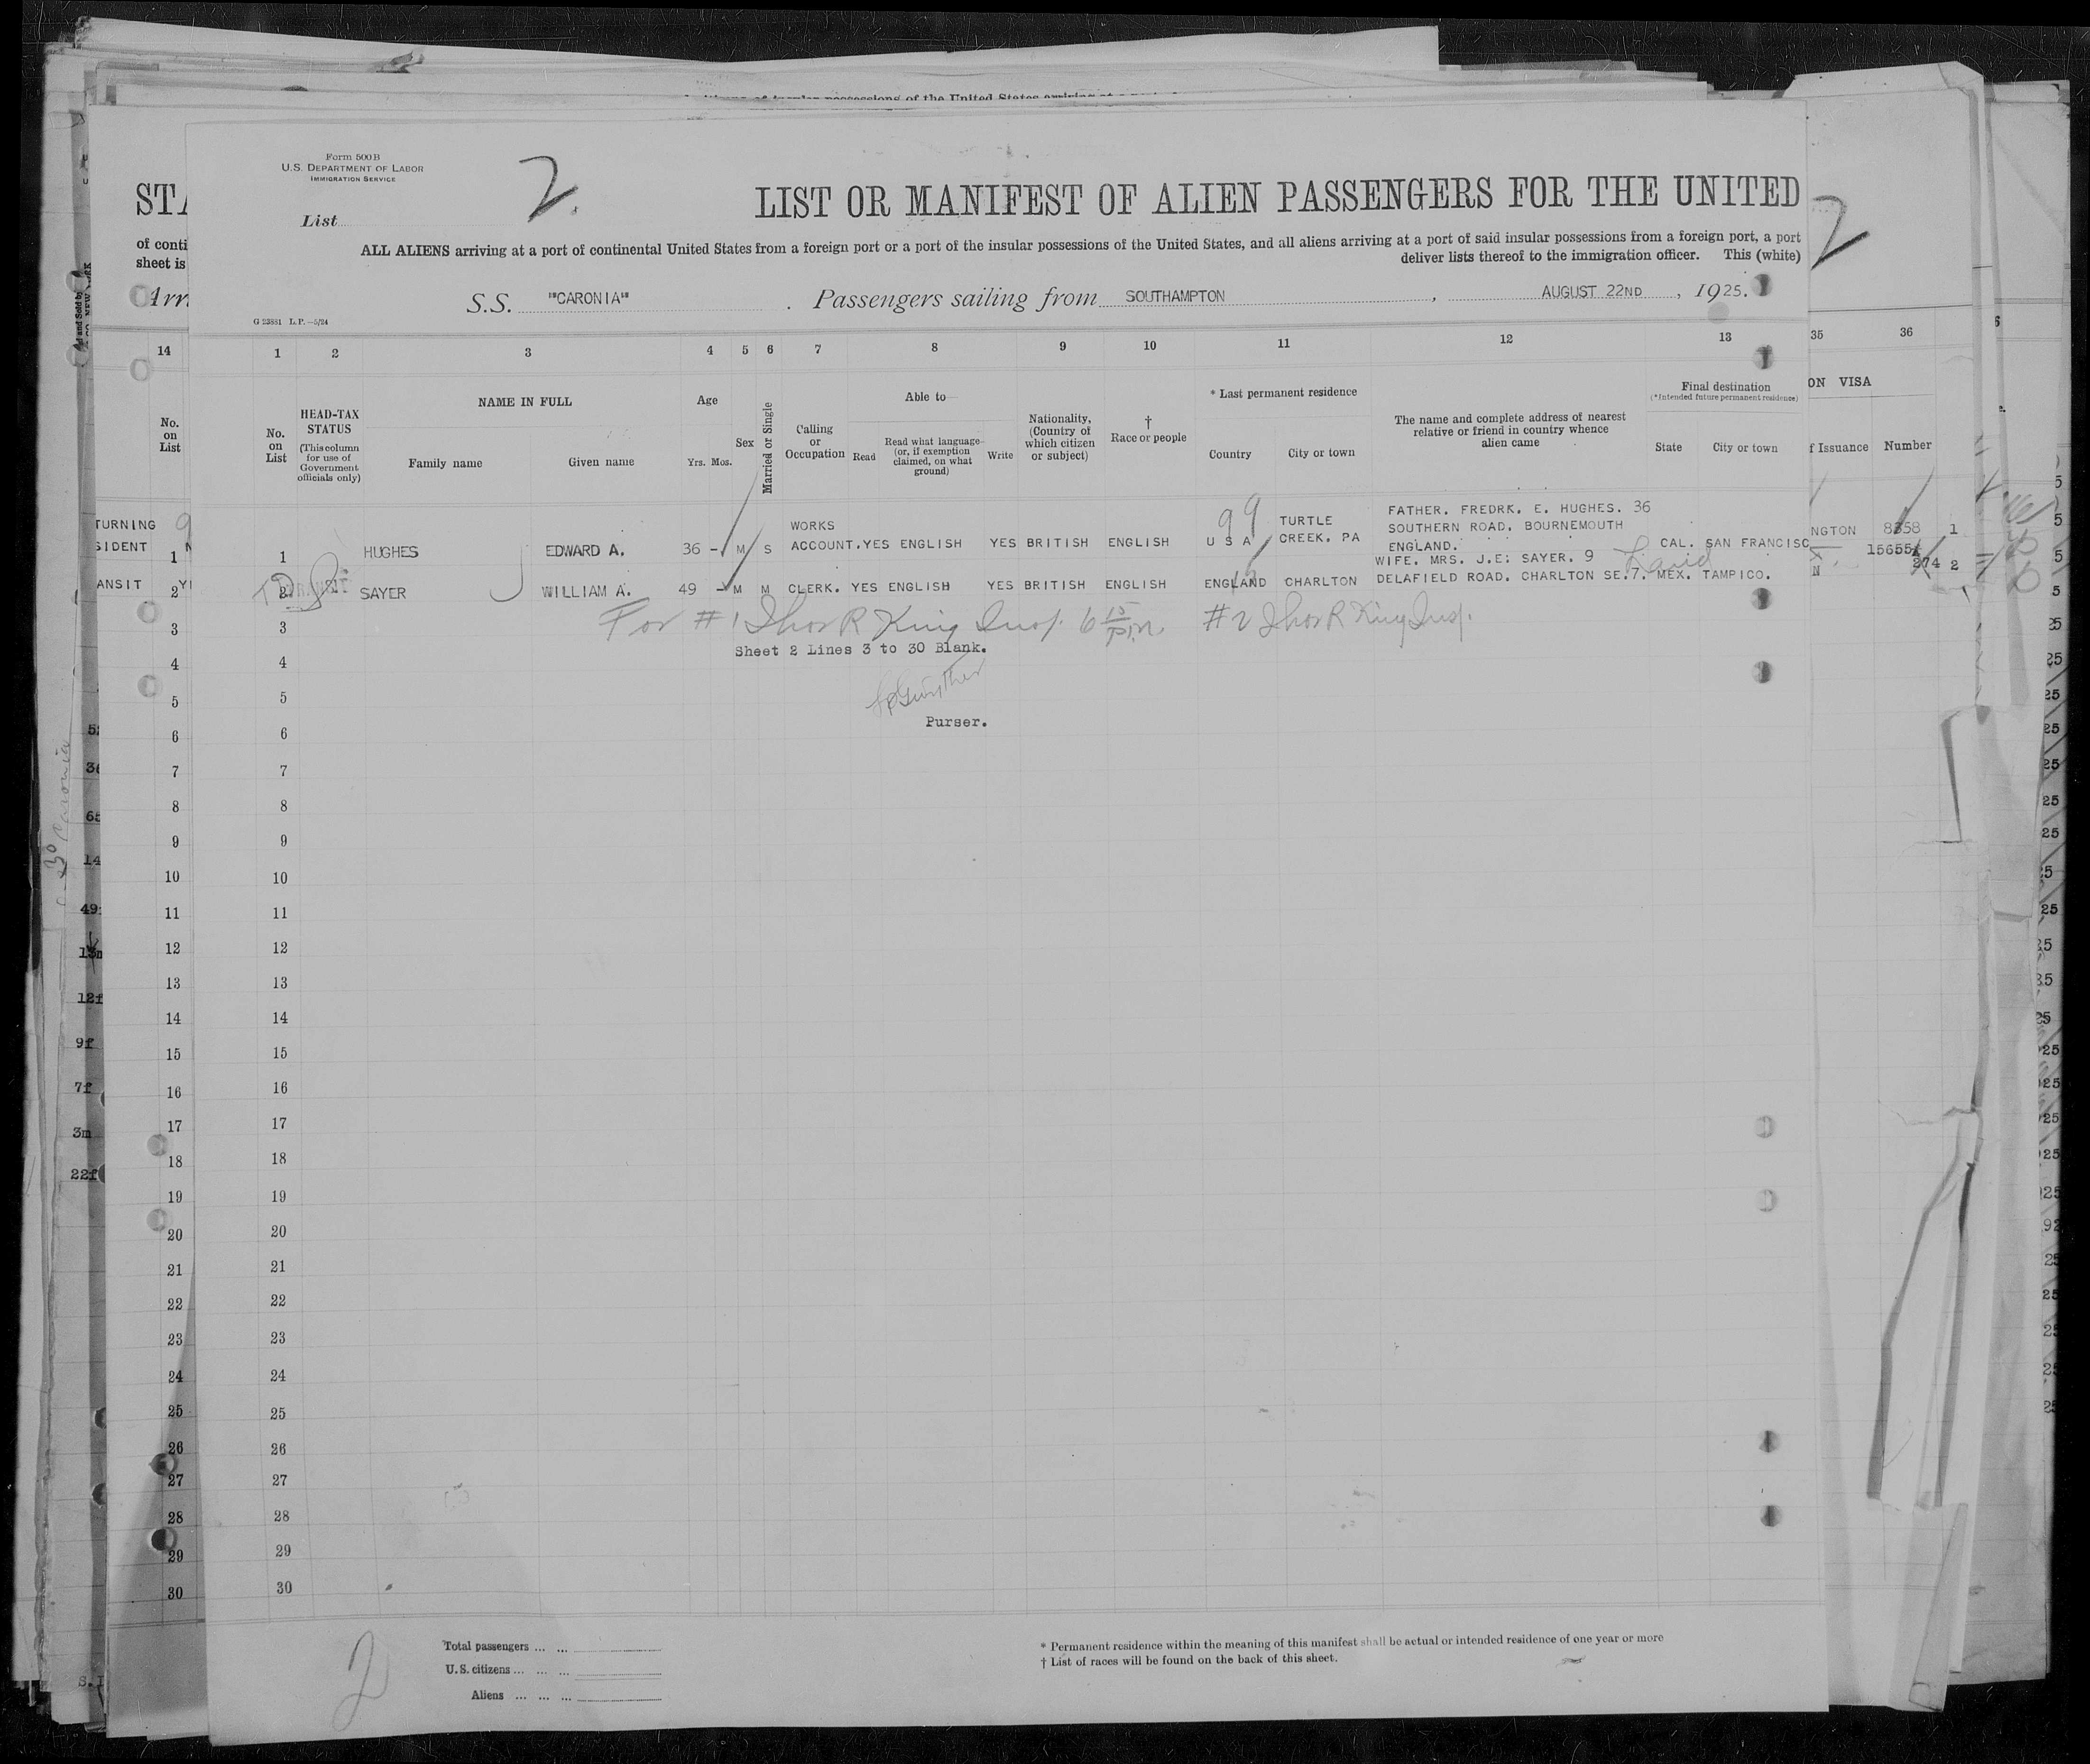 itions of insular possessions of the United States arriving at a
Form 500B
U.S. DEPARTMENT OF LABOR
IMMIGRATION SERVICE
2.
STA
LIST OR MANIFEST OF ALIEN PASSENGERS FOR THE UNITED
2
List
of conti
ALL ALIENS arriving at a port of continental United States from a foreign port or a port of the insular possessions of the United States, and all aliens arriving at a port of said insular possessions from a foreign port, a port
sheet is
deliver lists thereof to the immigration officer. This (white)
Arri
S.S. "CARONIA" . Passengers sailing from SOUTHAMPTON , AUGUST 22ND , 1925.
G 23881 L.P.—5/24
14 1 2 3 4 5 6 7 8 9 10 11 12 13 35 36
No. on List
No. on List
HEAD-TAX STATUS
(This column for use of Government officials only)
NAME IN FULL
Family name Given name
Age
Yrs. Mos.
Sex
Married or Single
Calling or Occupation
Able to
Read
Read what language (or, if exemption claimed, on what ground)
Write
Nationality, (Country of which citizen or subject)
†
Race or people
* Last permanent residence
Country City or town
The name and complete address of nearest relative or friend in country whence alien came
Final destination
(*Intended future permanent residence)
State City or town
ON VISA
f Issuance Number
99
FATHER. FREDRK. E. HUGHES. 36
TURNING 9 WORKS TURTLE SOUTHERN ROAD. BOURNEMOUTH NGTON 8358 1
SIDENT N 1 1 HUGHES EDWARD A. 36 - M S ACCOUNT. YES ENGLISH YES BRITISH ENGLISH U S A CREEK. PA ENGLAND. CAL. SAN FRANCISC 15655
WIFE. MRS. J.E: SAYER. 9 274 2
ANSIT 2 YE 2 SAYER WILLIAM A. 49 - M M CLERK. YES ENGLISH YES BRITISH ENGLISH ENGLAND CHARLTON DELAFIELD ROAD. CHARLTON SE.7. MEX. TAMPICO.
For #1 Thos R King Insp. 6 15 pm #2 Thos R King Insp.
3 3
Sheet 2 Lines 3 to 30 Blank.
4 4
5 5
Purser.
6 6
7 7
8 8
9 9
10 10
11 11
12 12
13 13
14 14
15 15
16 16
17 17
18 18
19 19
20 20
21 21
22 22
23 23
24 24
25 25
26 26
27 27
28 28
29 29
30 30
2
Total passengers ... ...
U.S. citizens ... ... ...
Aliens ... ... ...
* Permanent residence within the meaning of this manifest shall be actual or intended residence of one year or more
† List of races will be found on the back of this sheet.